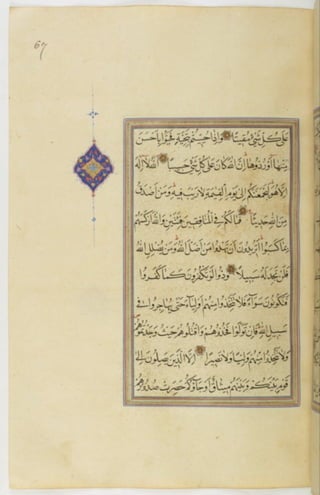 67
عَلىٰ كُلِّ شَيْءٍ مُقِيتًا وَاِذَا حُيِّيتُمْ بِتَحِيَّةٍ فَحَيُّوا بِاَحْسَنَ
مِنْهَا اَوْ رُدُّوهَا اِنَّ اللّٰهَ كَانَ عَلىٰ كُلِّ شَيْءٍ حَسِيبًا اَللّٰهُ لَا اِلٰهَ
اِلَّا هُوَ لَيَجْمَعَنَّكُمْ اِلىٰ يَوْمِ الْقِيٰمَةِ لَا رَيْبَ فِيهِ وَمَنْ اَصْدَقُ
مِنَ اللّٰهِ حَدِيثًا فَمَا لَكُمْ فِي الْمُنَافِقِينَ فِئَتَيْنِ وَاللّٰهُ اَرْكَسَهُمْ
بِمَا كَسَبُوا اَتُرِيدُونَ اَنْ تَهْدُوا مَنْ اَضَلَّ اللّٰهُ وَمَنْ يُضْلِلِ اللّٰهُ
فَلَنْ تَجِدَ لَهُ سَبِيلًا وَدُّوا لَوْ تَكْفُرُونَ كَمَا كَفَرُوا
فَتَكُونُونَ سَوَاءً فَلَا تَتَّخِذُوا مِنْهُمْ اَوْلِيَاءَ حَتّىٰ يُهَاجِرُوا فِي
سَبِيلِ اللّٰهِ فَاِنْ تَوَلَّوْا فَخُذُوهُمْ وَاقْتُلُوهُمْ حَيْثُ وَجَدْتُمُوهُمْ
وَلَا تَتَّخِذُوا مِنْهُمْ وَلِيًّا وَلَا نَصِيرًا اِلَّا الَّذِينَ يَصِلُونَ اِلىٰ
قَوْمٍ بَيْنَكُمْ وَبَيْنَهُمْ مِيثَاقٌ اَوْ جَاؤُكُمْ حَصِرَتْ صُدُورُهُمْ